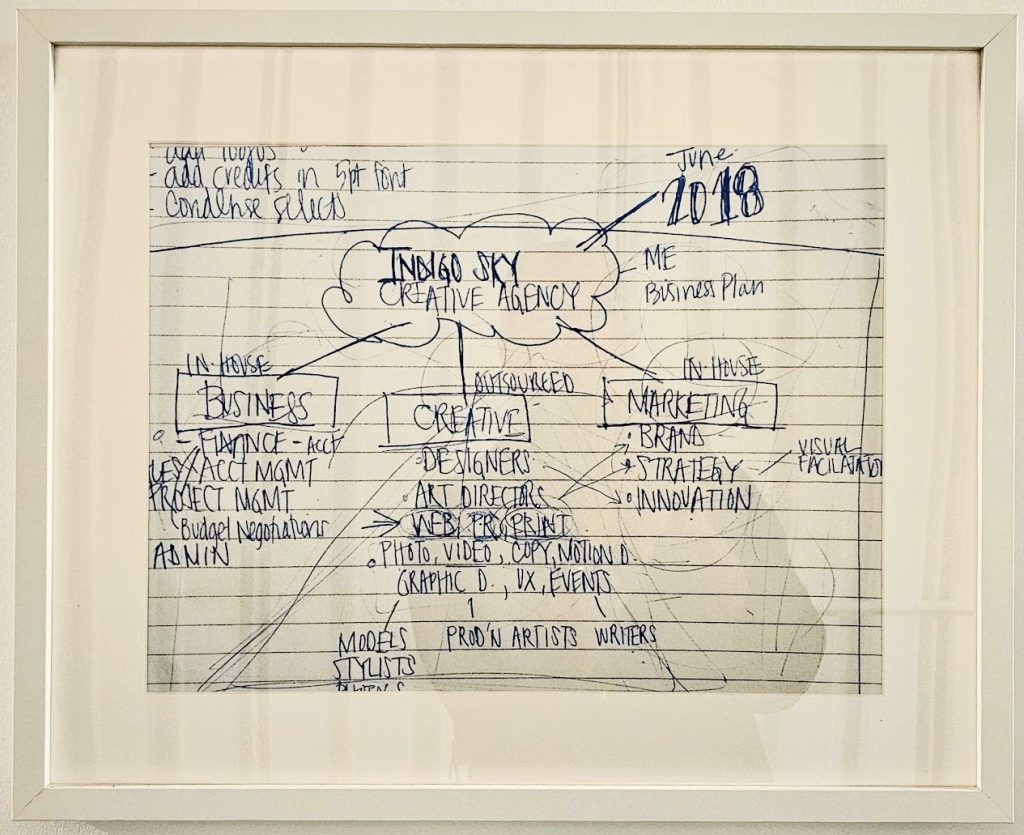 add logos
- add credits in 5pt font
- Condense selects
June
2018
INDIGO SKY
CREATIVE AGENCY
ME
Business Plan
IN-HOUSE
BUSINESS
- FINANCE - ACCT
ACCT MGMT
PROJECT MGMT
Budget Negotiations
ADMIN
OUTSOURCED
CREATIVE
• DESIGNERS
• ART DIRECTORS
WEB PR PRINT
• PHOTO, VIDEO, COPY, MOTION D.
GRAPHIC D., UX, EVENTS
MODELS
STYLISTS
PROD'N ARTISTS
WRITERS
IN-HOUSE
MARKETING
• BRAND
• STRATEGY
• INNOVATION
VISUAL